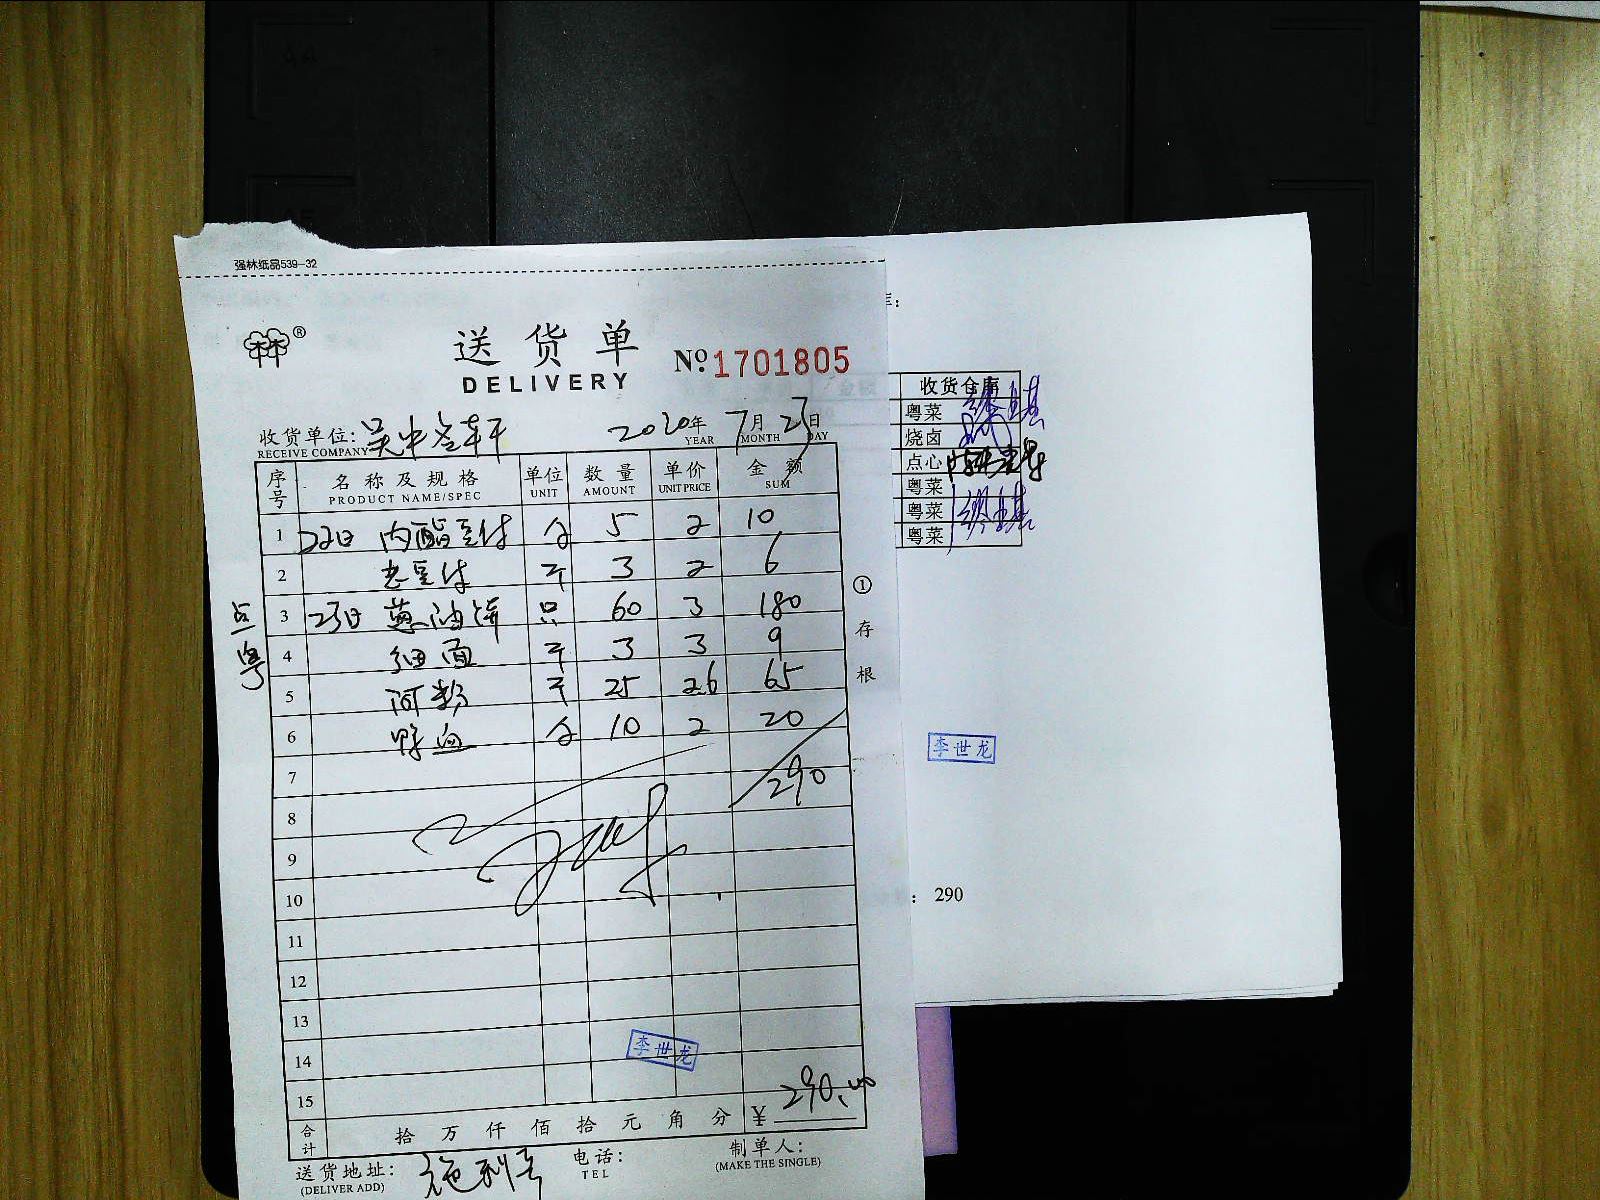 强林纸品539-32
林林®
送货单
DELIVERY
Nº 1701805
收货单位: 吴中 轩
RECEIVE COMPANY
2020年 7月 23日
YEAR MONTH DAY
序号 名称及规格 单位 数量 单价 金额
PRODUCT NAME/SPEC UNIT AMOUNT UNIT PRICE SUM
1 22日 内酯豆付 合 5 2 10
2 老豆付 斤 3 2 6
3 23日 葱油饼 只 60 3 180
4 细面 斤 3 3 9
5 河粉 斤 25 26 65
6 鸭血 合 10 2 20
7 290
8
9
10
11
12
13
14
15
点
粤
①存根
李世龙
合计 拾万仟佰拾元角分 ¥ 290.00
送货地址: 电话: 制单人:
(DELIVER ADD) TEL (MAKE THE SINGLE)
库:
收货仓库
粤菜
烧卤
点心
粤菜
粤菜
粤菜
李世龙
: 290